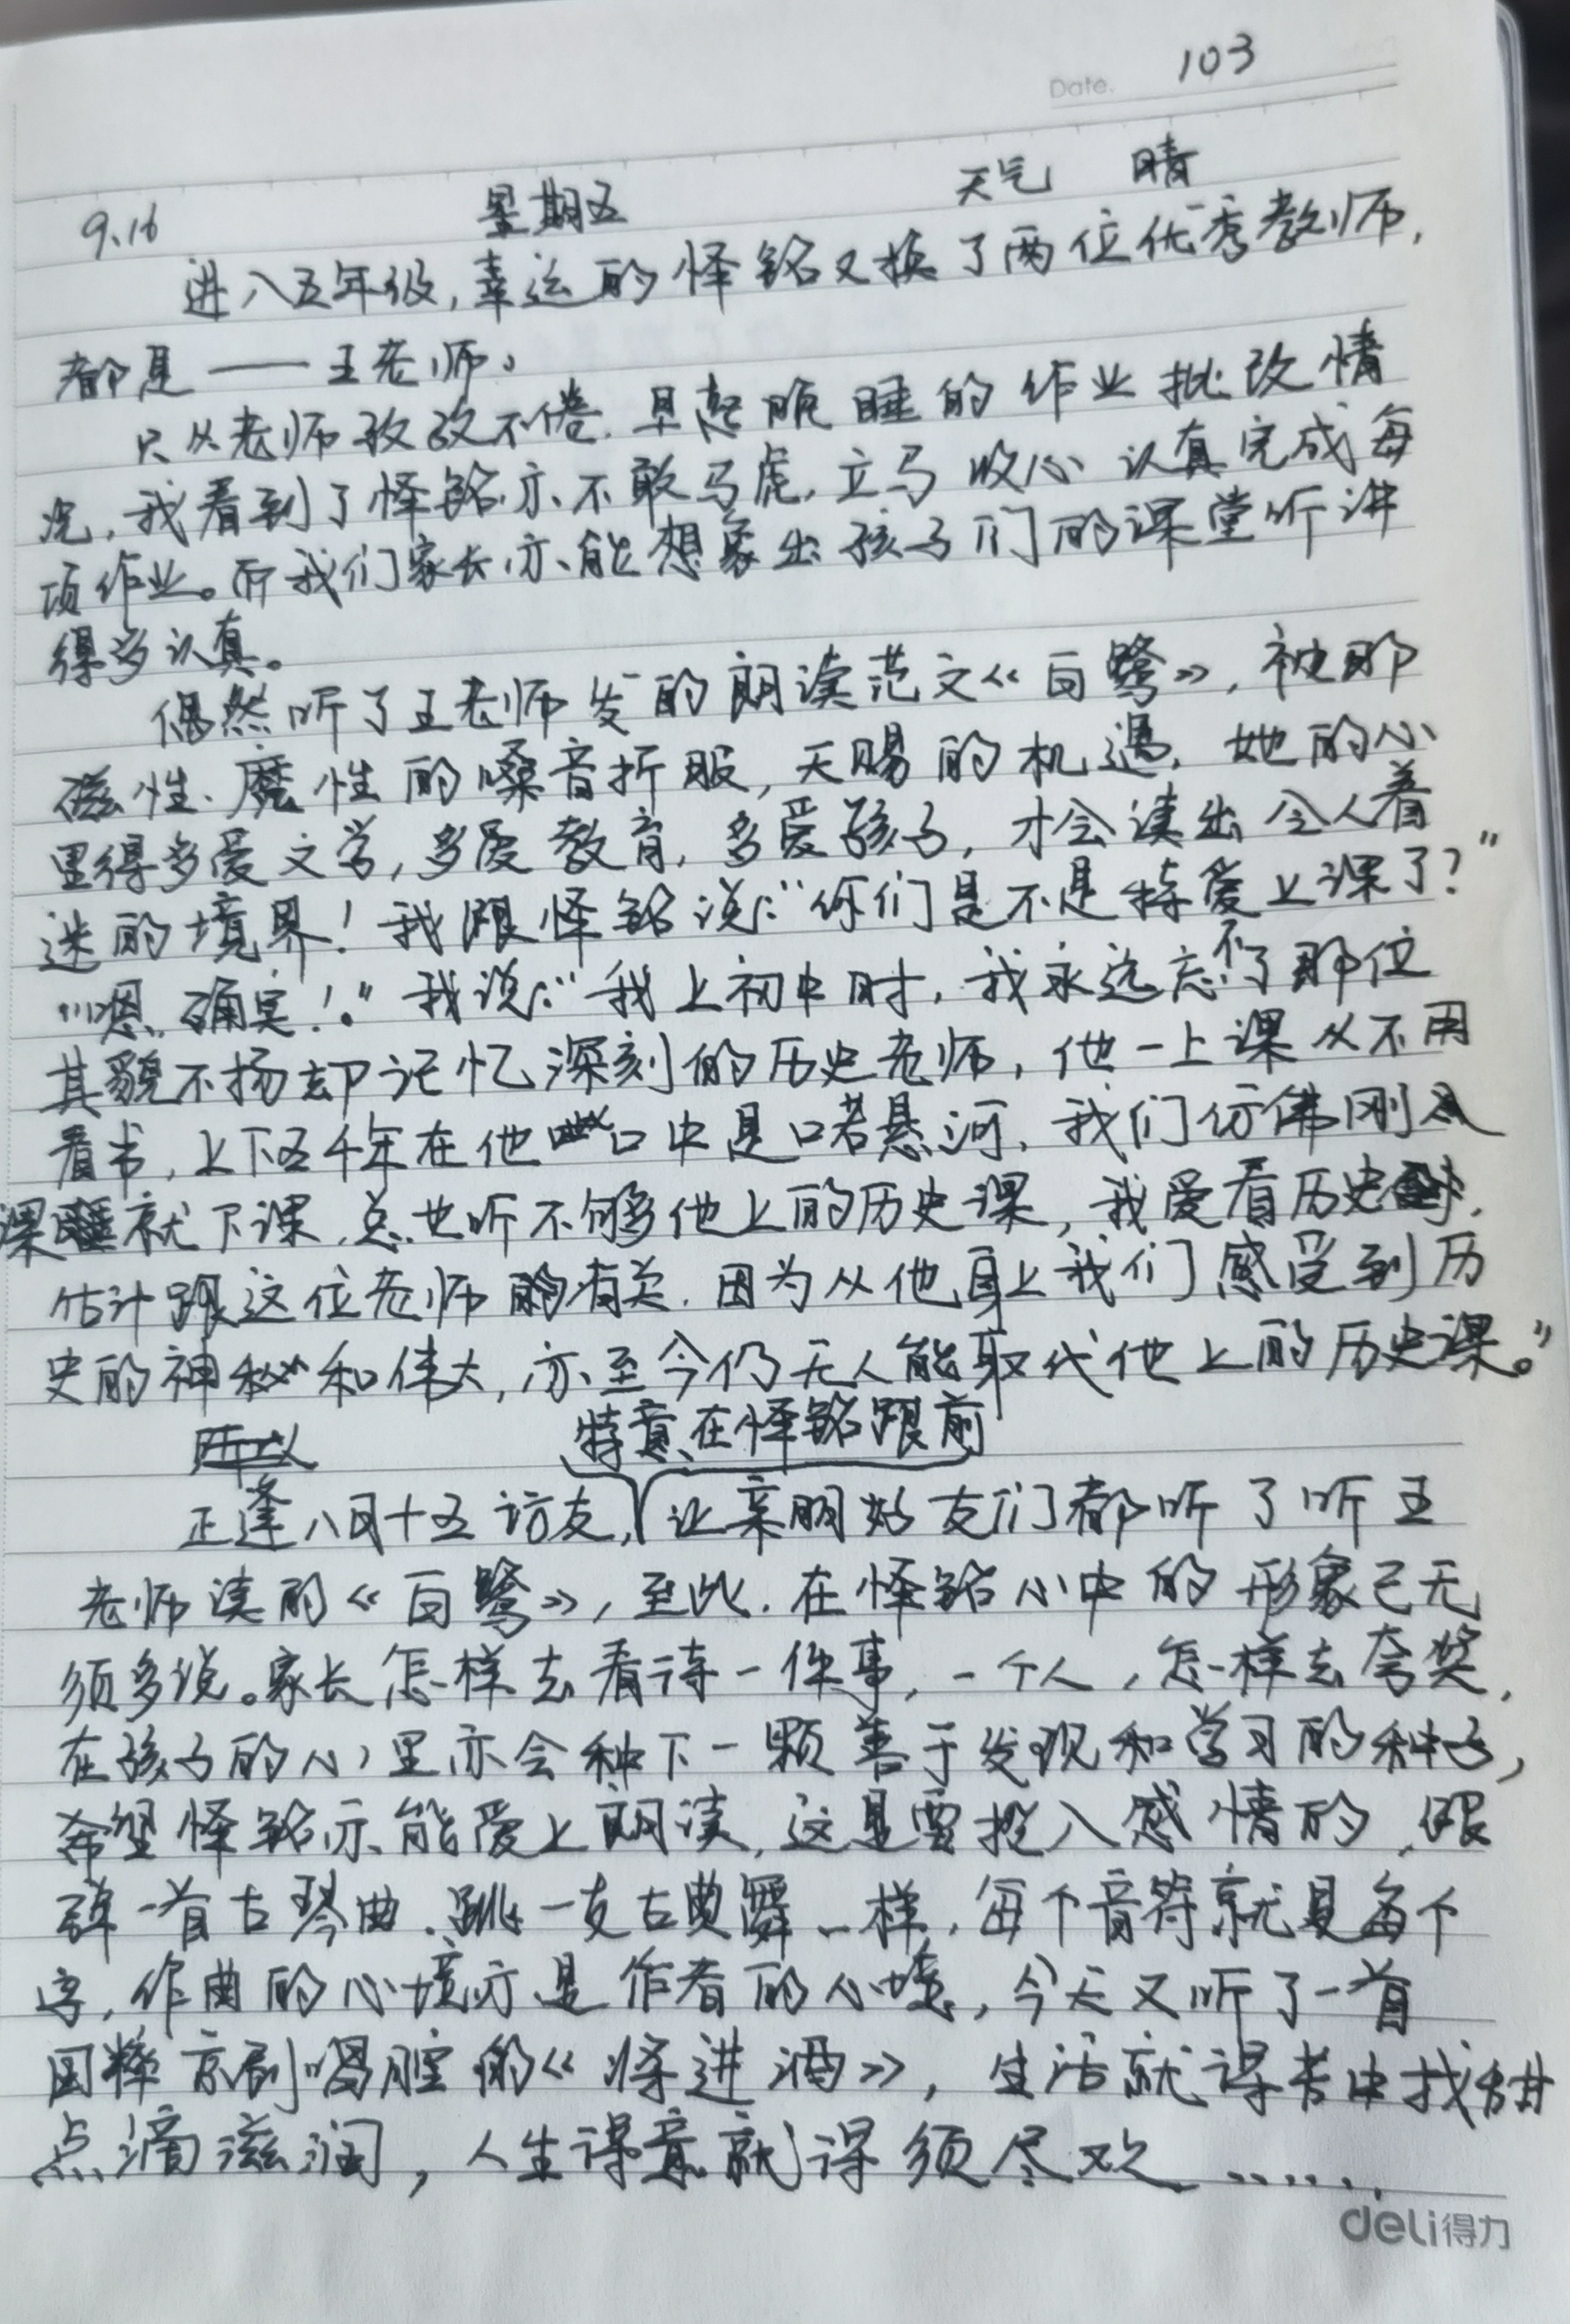 Date. 103
9.16 星期五 天气 晴
进入五年级,幸运的怿铭又换了两位优秀教师,
都是——王老师。
只从老师孜孜不倦、早起晚睡的作业批改情
况,我看到了怿铭亦不敢马虎,立马收心认真完成每
项作业。而我们家长亦能想象出孩子们的课堂听讲
得多认真。
偶然听了王老师发的朗读范文《白鹭》,被那
磁性、魔性的嗓音折服,天赐的机遇,她的心
里得多爱文学,多爱教育,多爱孩子,才会读出令人着
迷的境界!我跟怿铭说:“你们是不是特爱上课了?”
“嗯、确实!。”我说:“我上初中时,我永远忘不了那位
其貌不扬却记忆深刻的历史老师,他一上课从不用
看书,上下五千年在他口中是口若悬河,我们仿佛刚上
课就下课,总也听不够他上的历史课,我爱看历史,
估计跟这位老师有关,因为从他身上我们感受到历
史的神秘和伟大,亦至今仍无人能取代他上的历史课。”
所以 特意在怿铭跟前
正逢八月十五访友,让亲朋好友们都听了听王
老师读的《白鹭》,至此,在怿铭心中的形象已无
须多说。家长怎样去看待一件事,一个人,怎样去夸奖,
在孩子的心里亦会种下一颗善于发现和学习的种子,
希望怿铭亦能爱上朗读,这是要投入感情的,跟
弹一首古琴曲、跳一支古典舞一样,每个音符就是每个
字,作曲的心境亦是作者的心境,今天又听了一首
国粹京剧唱腔的《将进酒》,生活就得苦中找甜
点滴滋润,人生得意就得须尽欢……
deli得力